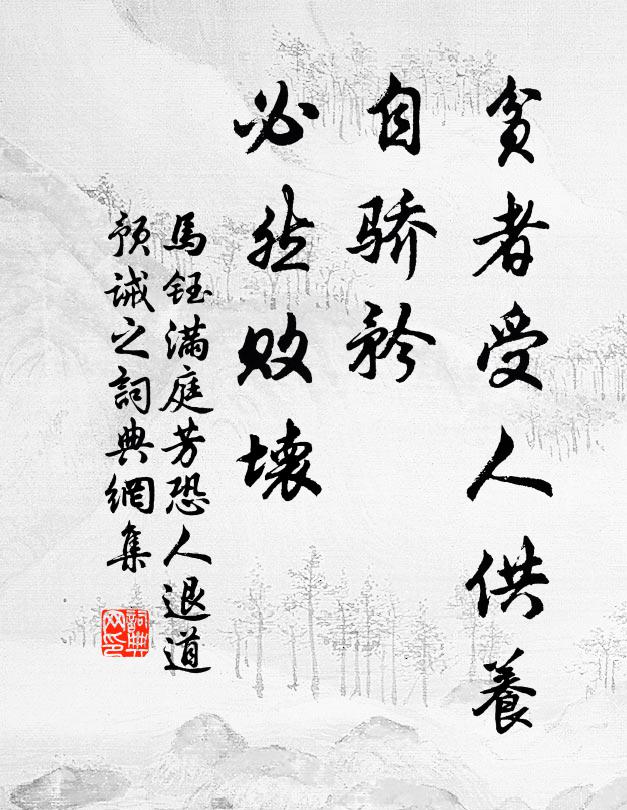 貧者受人供養
自骄矜
必然败壊
馬鈺滿庭芳恐人退道
預诫之詞典網集
詞典
网印